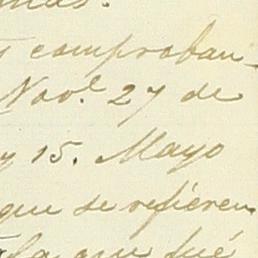 comproban-
Nov.e 27 de
y 15. Mayo
que se refieren
la que fué